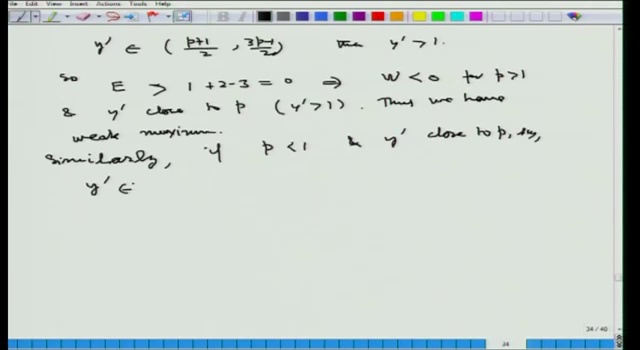 File Edit View Insert Actions Tools Help
y' ∈ ( p+1/2 , 3p-1/2 ) then y' > 1.
so E > 1 + 2 - 3 = 0 ⇒ W < 0 for p > 1
& y' close to p (y' > 1). Thus we have
weak maximum.
Similarly, if p < 1 & y' close to p, say,
y' ∈
34 / 40
34